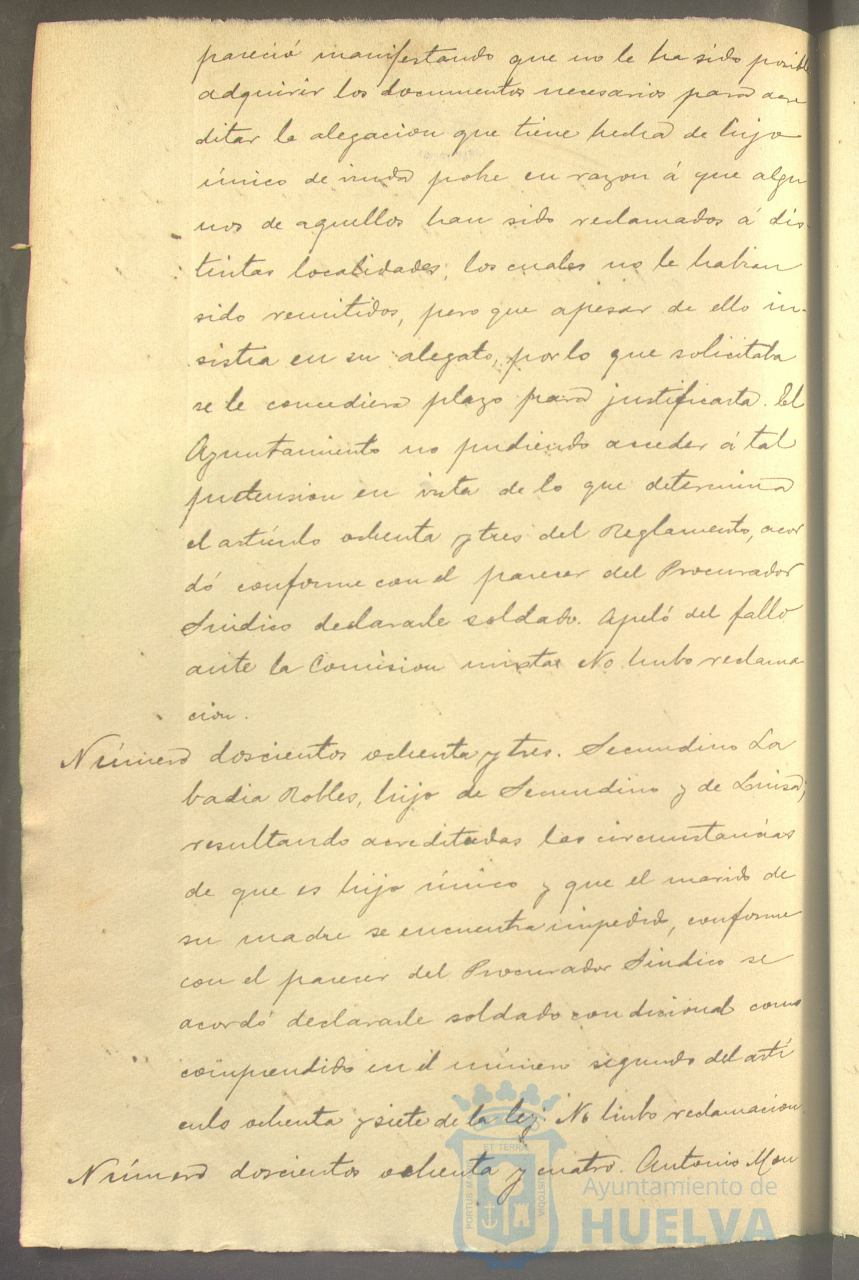 pareció manifestando que no le ha sido posible
adquirir los documentos necesarios para acre
ditar la alegacion que tiene hecha de hijo
único de viuda pobre en razon á que algu
nos de aquellos han sido reclamados á dis-
tintas localidades, los cuales no le habian
sido remitidos, pero que apesar de ello in-
sistia en su alegato, por lo que solicitaba
se le concediera plazo para justificarla. El
Ayuntamiento no pudiendo acceder á tal
pretension en vista de lo que determina
el artículo ochenta y tres del Reglamento, acor
dó conforme con el parecer del Procurador
Sindico declararle soldado. Apeló del fallo
ante la Comision mixta. No hubo reclama
cion.
Número doscientos ochenta y tres. Secundino La
badia Robles, hijo de Secundino y de Luisa;
resultando acreditadas las circunstancias
de que es hijo único y que el marido de
su madre se encuentra impedido, conforme
con el parecer del Procurador Sindico se
acordó declararle soldado condicional como
comprendido en el número segundo del artí
culo ochenta y siete de la ley. No hubo reclamacion.
Número doscientos ochenta y cuatro. Antonio Mon
ET TERRA
PORTUS M
CUSTODIA
Ayuntamiento de
HUELVA